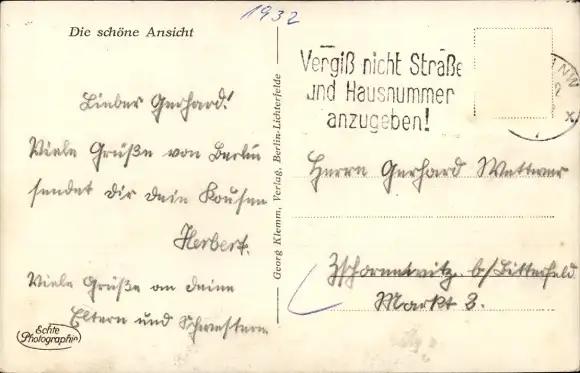 1932
Die schöne Ansicht
Vergiß nicht Straße
und Hausnummer
anzugeben!
Lieber Gerhard!
Viele Grüße von Berlin
sendet dir dein Kousen
Herbert.
Viele Grüße an deine
Eltern und Schwestern
Herrn Gerhard
Zschornewitz b/Bitterfeld
Markt 3.
Georg Klemm, Verlag, Berlin-Lichterfelde
Echte
Photographie